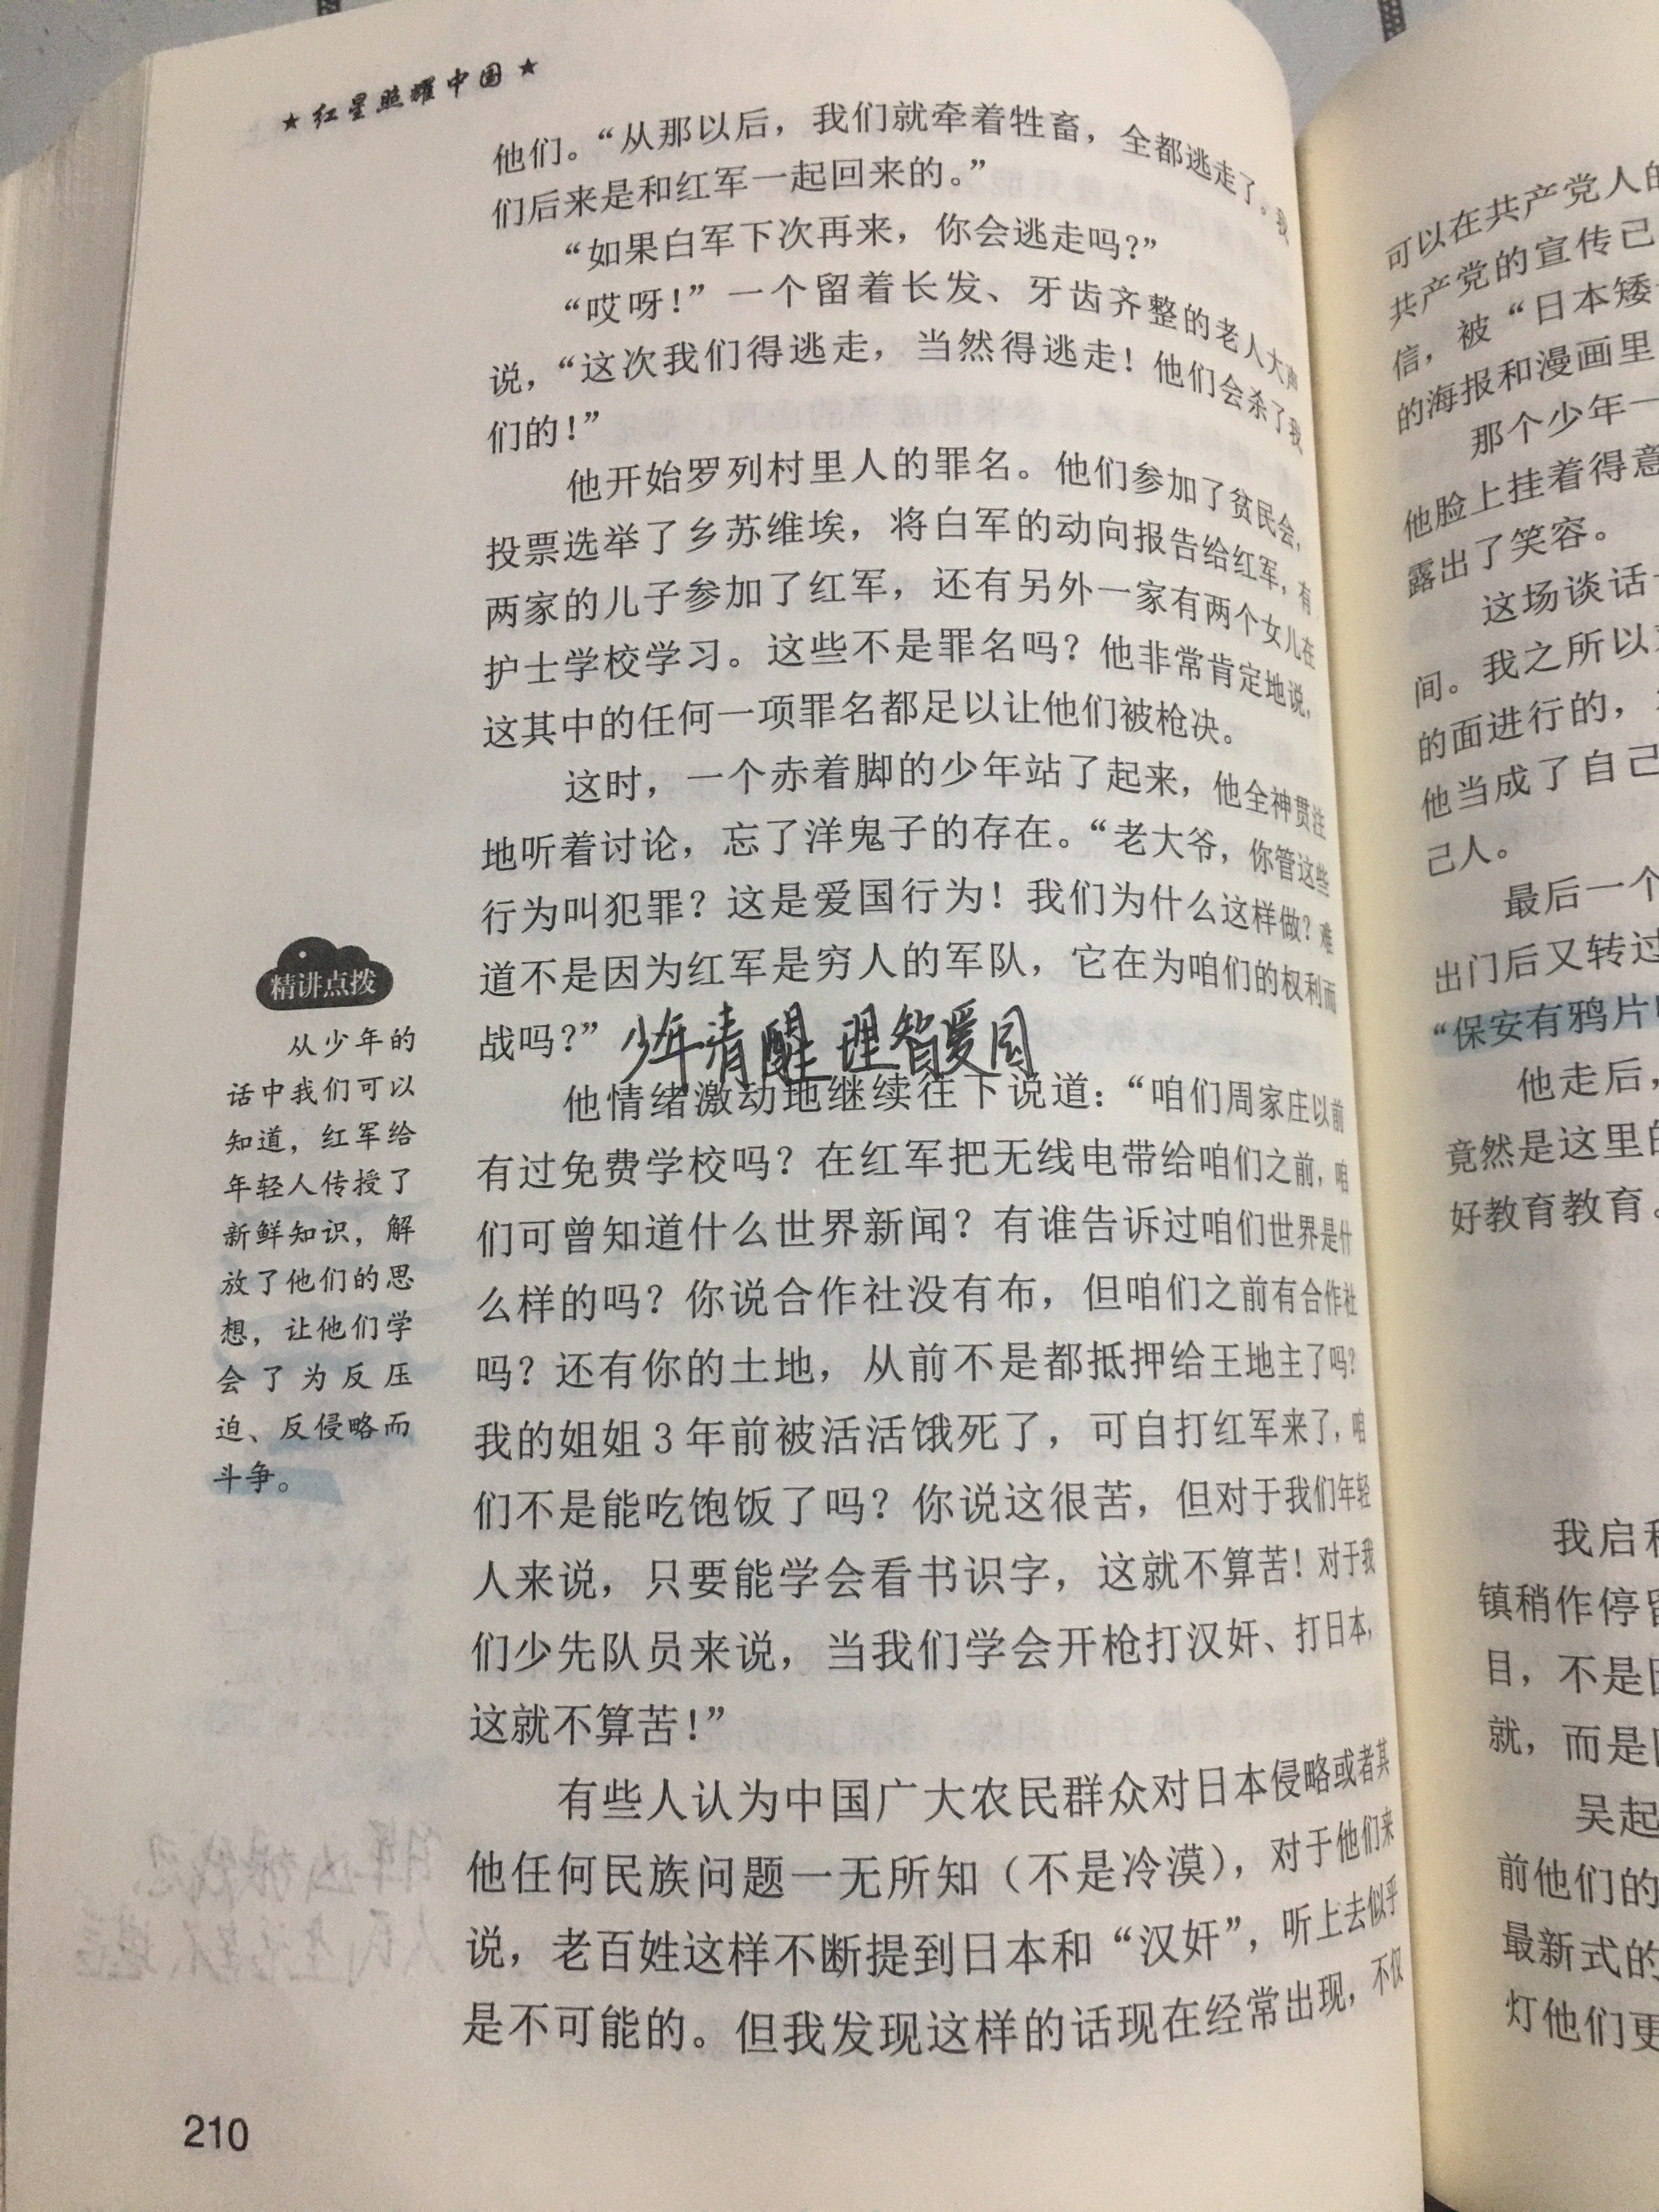 ★红星照耀中国★
他们。“从那以后，我们就牵着牲畜，全都逃走了。我
们后来是和红军一起回来的。”
“如果白军下次再来，你会逃走吗？”
“哎呀！”一个留着长发、牙齿齐整的老人大声
说，“这次我们得逃走，当然得逃走！他们会杀了我
们的！”
他开始罗列村里人的罪名。他们参加了贫民会，
投票选举了乡苏维埃，将白军的动向报告给红军，有
两家的儿子参加了红军，还有另外一家有两个女儿在
护士学校学习。这些不是罪名吗？他非常肯定地说，
这其中的任何一项罪名都足以让他们被枪决。
这时，一个赤着脚的少年站了起来，他全神贯注
地听着讨论，忘了洋鬼子的存在。“老大爷，你管这些
行为叫犯罪？这是爱国行为！我们为什么这样做？难
道不是因为红军是穷人的军队，它在为咱们的权利而
战吗？”
少年清醒 理智爱国
他情绪激动地继续往下说道：“咱们周家庄以前
有过免费学校吗？在红军把无线电带给咱们之前，咱
们可曾知道什么世界新闻？有谁告诉过咱们世界是什
么样的吗？你说合作社没有布，但咱们之前有合作社
吗？还有你的土地，从前不是都抵押给王地主了吗？
我的姐姐3年前被活活饿死了，可自打红军来了，咱
们不是能吃饱饭了吗？你说这很苦，但对于我们年轻
人来说，只要能学会看书识字，这就不算苦！对于我
们少先队员来说，当我们学会开枪打汉奸、打日本，
这就不算苦！”
有些人认为中国广大农民群众对日本侵略或者其
他任何民族问题一无所知（不是冷漠），对于他们来
说，老百姓这样不断提到日本和“汉奸”，听上去似乎
是不可能的。但我发现这样的话现在经常出现，不仅
精讲点拨
从少年的
话中我们可以
知道，红军给
年轻人传授了
新鲜知识，解
放了他们的思
想，让他们学
会了为反压
迫、反侵略而
斗争。
210
可以在共产党人的
共产党的宣传已
信，被“日本矮
的海报和漫画里
那个少年一
他脸上挂着得意
露出了笑容。
这场谈话
间。我之所以
的面进行的，
他当成了自己
己人。
最后一个
出门后又转过
“保安有鸦片
他走后，
竟然是这里的
好教育教育。
我启程
镇稍作停留
目，不是因
就，而是因
吴起
前他们的
最新式的
灯他们更